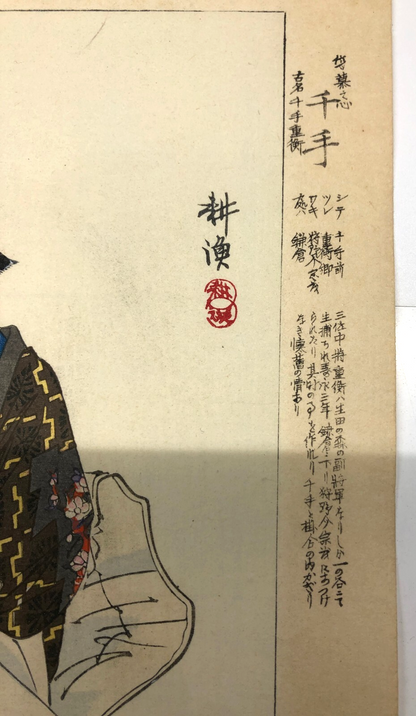 千手
古名千手重衡
シテ 千手前
ツレ 重衡卿
ワキ 狩野介宗茂
処ハ 鎌倉
三位中将重衡ハ生田の森の副将軍なりしか一の谷にて
生捕られ寿永三年鎌倉に下り狩野介宗茂にあつけ
られたり其のを作れり千手と掛合の内かきり
なき懐旧の情あり
耕漁